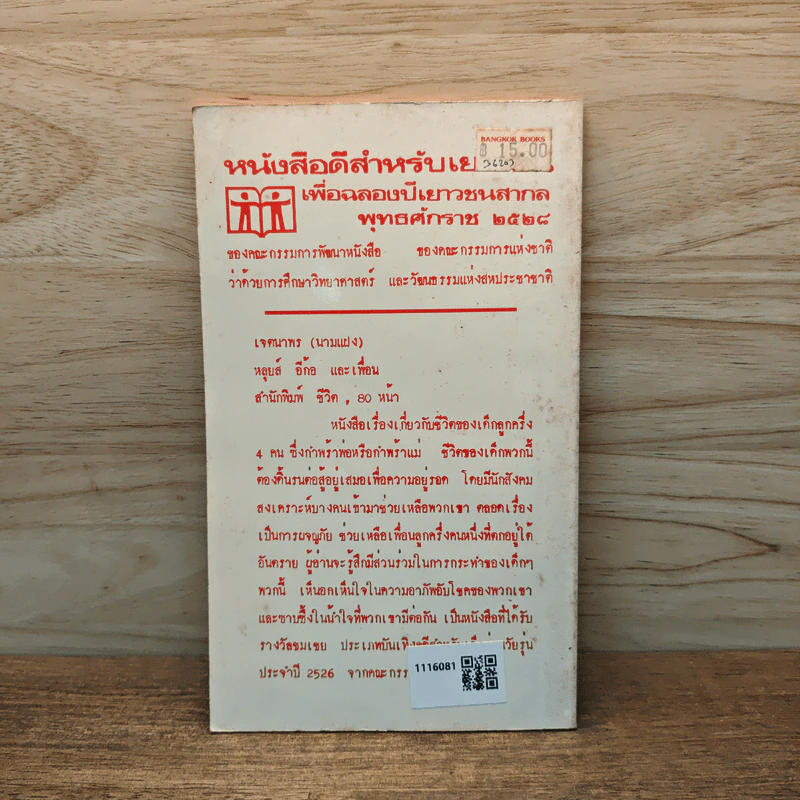 BANGKOK BOOKS
฿ 15.00
หนังสือดีสำหรับเย
เพื่อฉลองปีเยาวชนสากล
พุทธศักราช ๒๕๒๘
ของคณะกรรมการพัฒนาหนังสือ ของคณะกรรมการแห่งชาติ
ว่าด้วยการศึกษาวิทยาศาสตร์ และวัฒนธรรมแห่งสหประชาชาติ
เจตนาพร (นามแฝง)
หลุยส์ อีก้อ และเพื่อน
สำนักพิมพ์ ชีวิต , 80 หน้า
หนังสือเรื่องเกี่ยวกับชีวิตของเด็กลูกครึ่ง
4 คน ซึ่งกำพร้าพ่อหรือกำพร้าแม่ ชีวิตของเด็กพวกนี้
ต้องดิ้นรนต่อสู้อยู่เสมอเพื่อความอยู่รอด โดยมีนักสังคม
สงเคราะห์บางคนเข้ามาช่วยเหลือพวกเขา ตลอดเรื่อง
เป็นการผจญภัย ช่วยเหลือเพื่อนลูกครึ่งคนหนึ่งที่ตกอยู่ใต้
อันตราย ผู้อ่านจะรู้สึกมีส่วนร่วมในการกระทำของเด็กๆ
พวกนี้ เห็นอกเห็นใจในความอาภัพอับโชคของพวกเขา
และซาบซึ้งในน้ำใจที่พวกเขามีต่อกัน เป็นหนังสือที่ได้รับ
รางวัลชมเชย ประเภทบันเทิงคดีสำหรับเด็กก่อนวัยรุ่น
ประจำปี 2526 จากคณะกรร
1116081